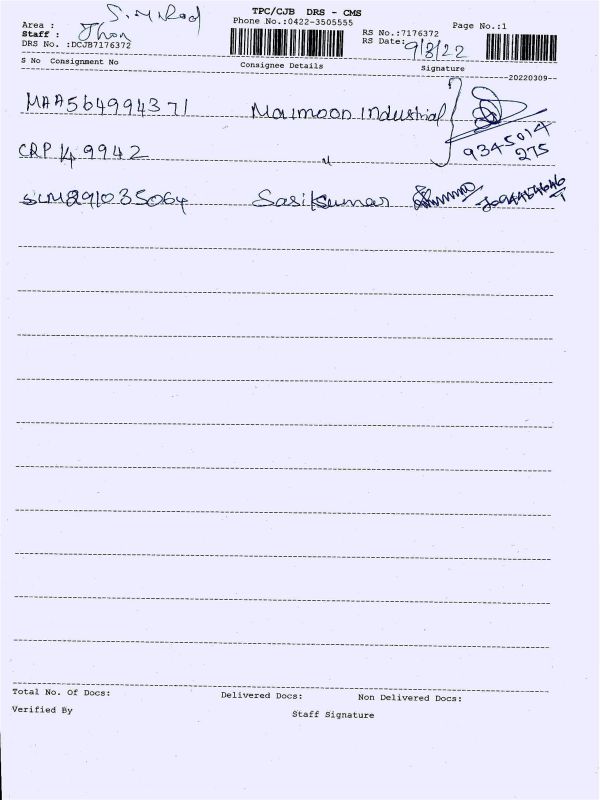 TPC/CJB DRS - CMS
Phone No.:0422-3505555
Page No.:1
Area : S.M.Rod
Staff : Jhon
DRS No. :DCJB7176372
RS No.:7176372
RS Date: 9/3/22
S No Consignment No Consignee Details Signature
20220309
MAA564994371 Maimoon Industrial
CRP 149942 〃 9345014
275
SLM891035064 Sasikumar
Total No. Of Docs: Delivered Docs: Non Delivered Docs:
Verified By Staff Signature